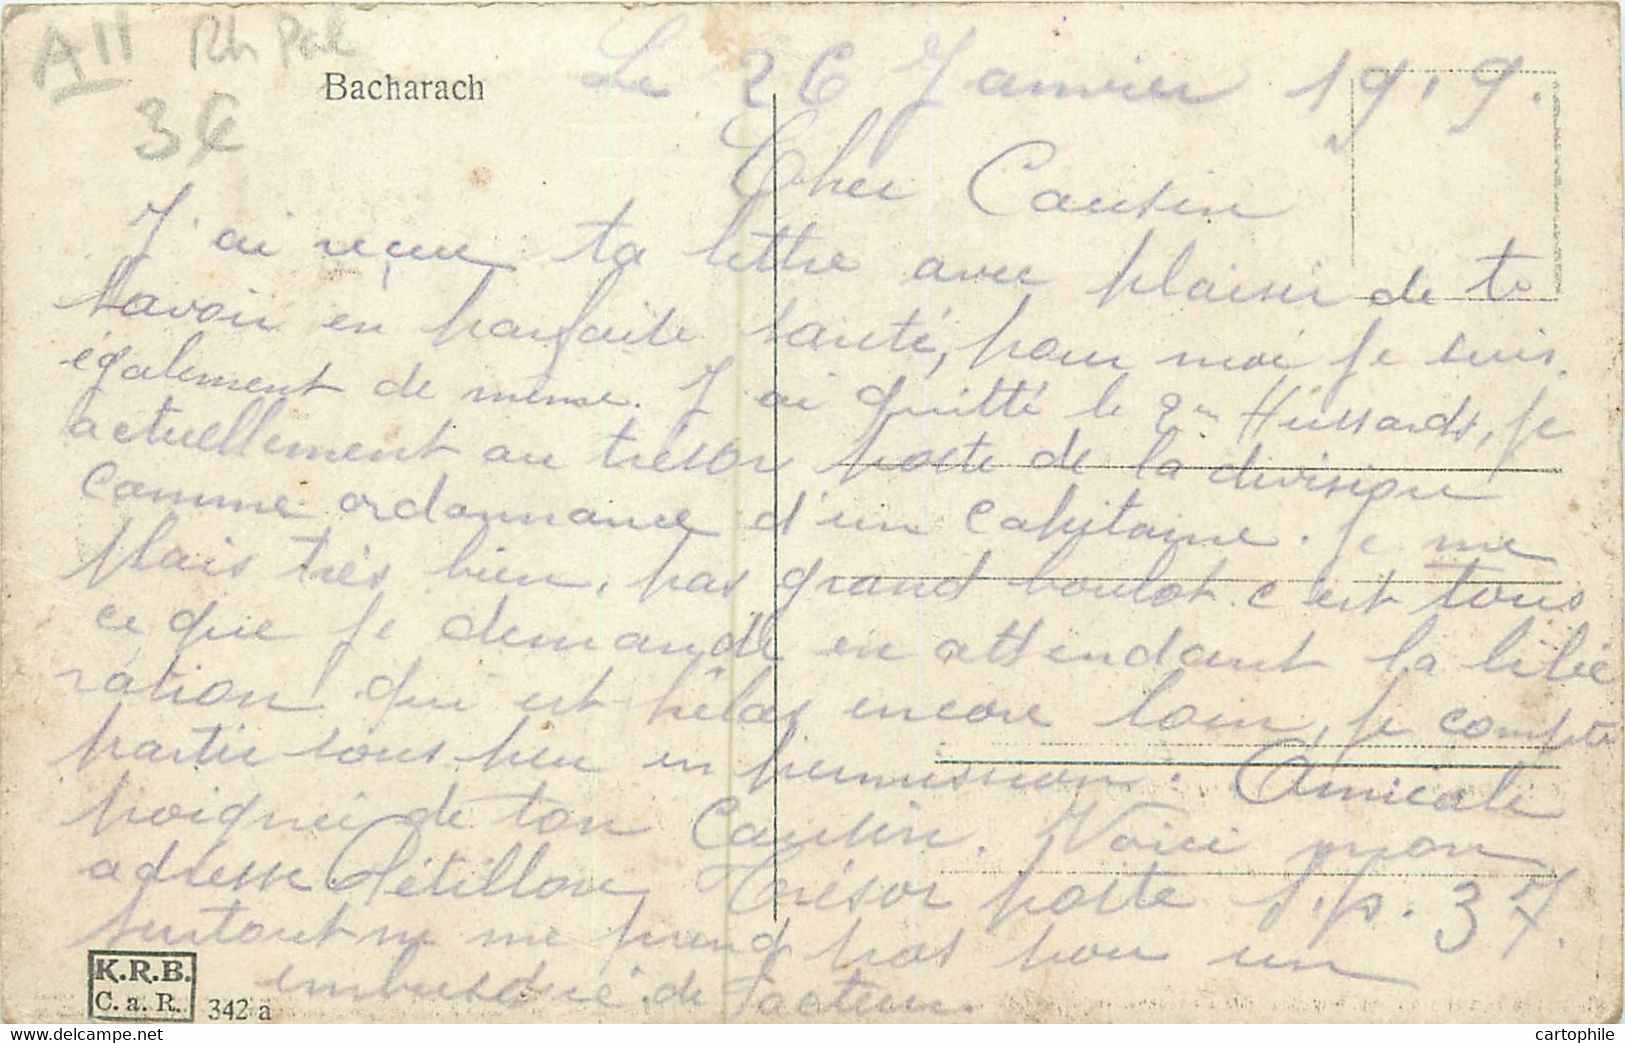 A11 Rh Pal
3€
Bacharach
Le 26 Janvier 1919.
Cher Cousin
J'ai reçue ta lettre avec plaisir de te
savoir en parfaite santé, pour moi je suis
également de même. J'ai quitté le 2em Hussards, je
actuellement au trésor poste de la division
comme ordonnance d'un capitaine. Je me
plais très bien, pas grand boulot. c'est tous
ce que je demande en attendant la libé
ration qui est hélas encore loin, je compte
partir sous peu en permission. Amicale
poignée de ton Cousin. Voici mon
adresse Pétillon, Trésor poste S.p. 37.
surtout ne me prend pas pour un
embusqué, de facteur.
K.R.B.
C. a R.
342 a
cartophile.com